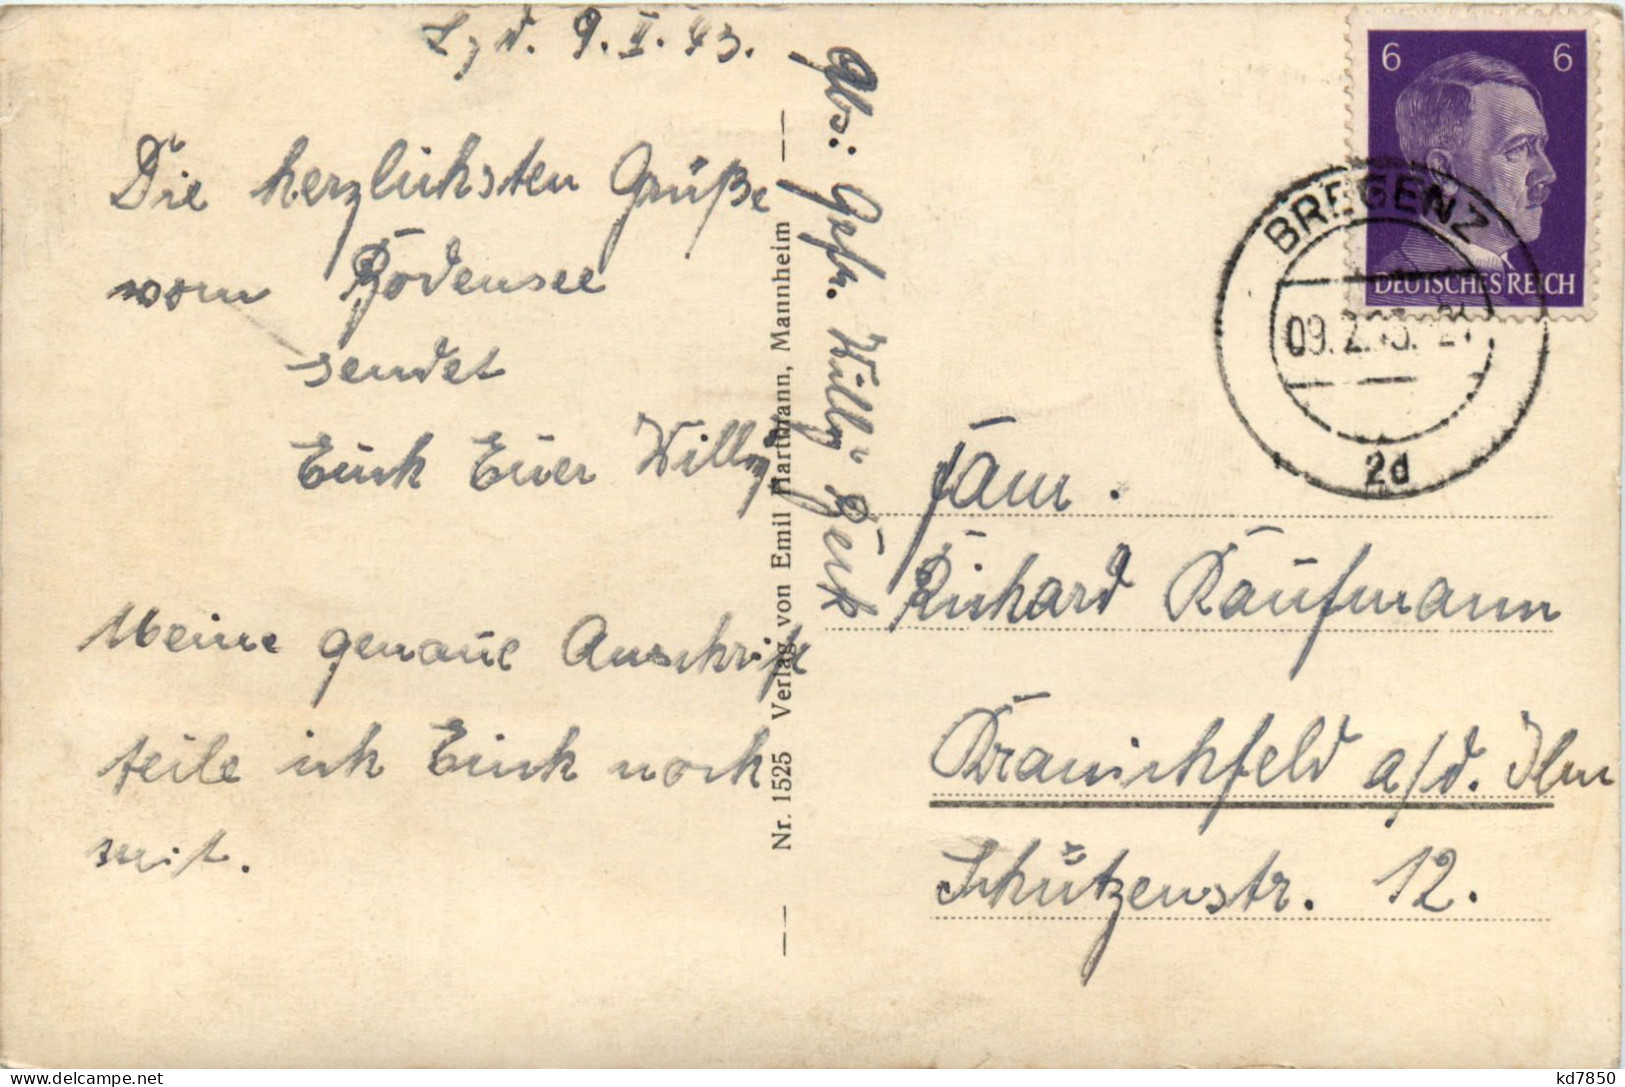 d. 9.II.43.
Die herzlichsten Grüße
vom Bodensee
sendet
Euch Euer Willy
Meine genaue Anschrift
teile ich Euch noch
mit.
Nr. 1525 Verlag von Emil Hartmann, Mannheim
Abs: Gefr. Willy
6 6
DEUTSCHES REICH
BREGENZ
09.2.43. 21
2d
Fam.
Richard Kaufmann
Kranichfeld a/d. Ilm
Schützenstr. 12.
kd7850